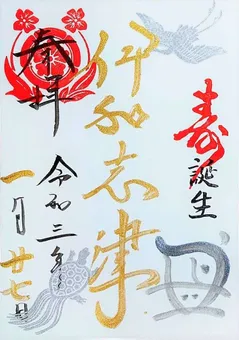 寿誕生
丑
伊和志津
奉拝
令和三年
一月廿七日